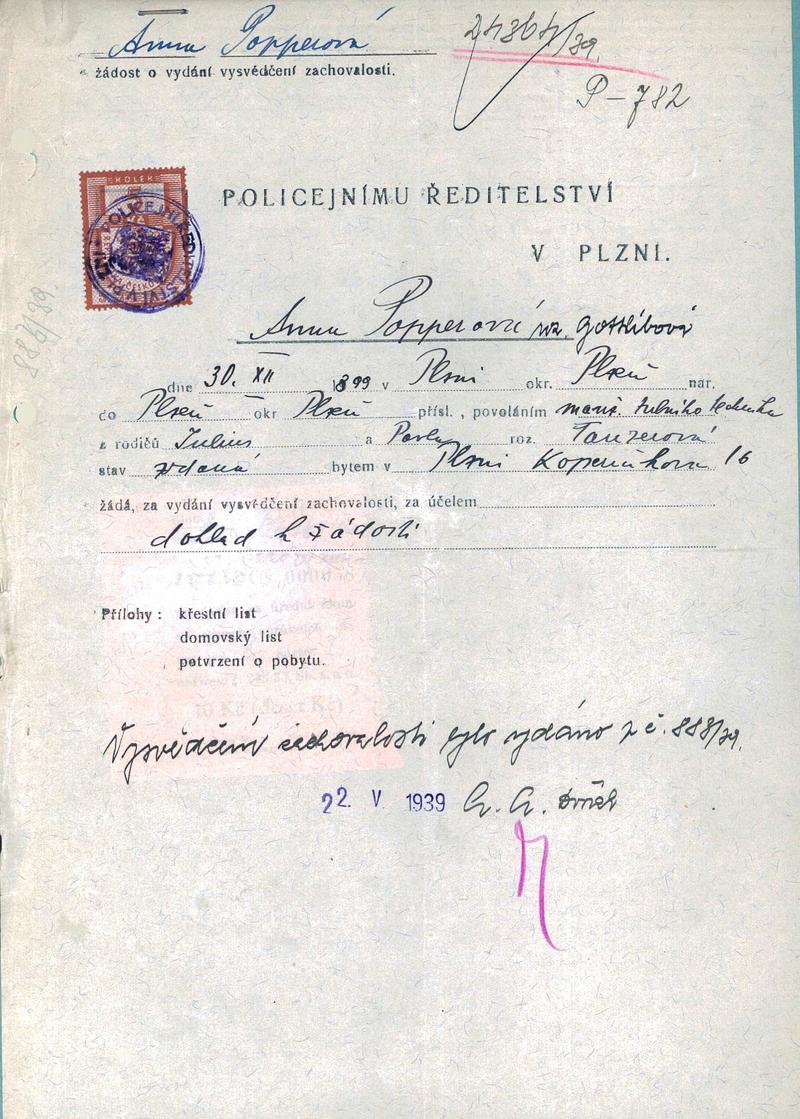 Anna Popperová
24364/39.
žádost o vydání vysvědčení zachovalosti.
P-782
KOLEK
POLICEJNÍMU ŘEDITELSTVÍ
V PLZNI.
Anna Popperová roz. Gottlibová
888/39
dne 30. XII 1899 v Plzni okr. Plzeň nar.
do Plzeň okr Plzeň přísl., povoláním manž. technika
z rodičů Julius a Pavla roz. Tanzerová
stav vdaná bytem v Plzni Koperníkova 16
žádá, za vydání vysvědčení zachovalosti, za účelem
doklad k žádosti
Přílohy : křestní list
domovský list
potvrzení o pobytu.
10 Kč
Vysvědčení zachovalosti bylo vydáno p č. 888/39.
22. V 1939